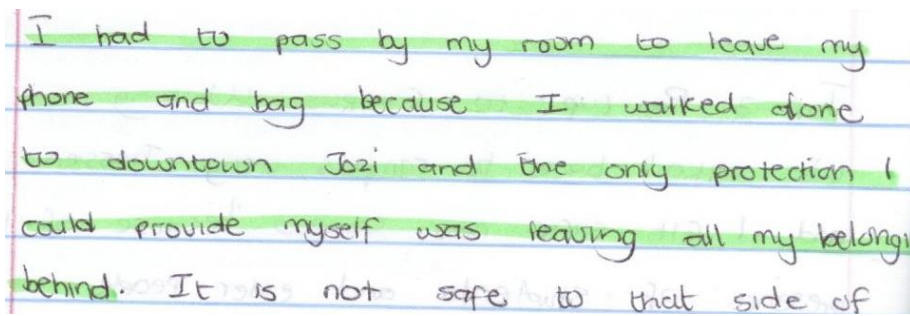 I had to pass by my room to leave my
phone and bag because I walked alone
to downtown Jozi and the only protection I
could provide myself was leaving all my belongi
behind. It is not safe to that side of